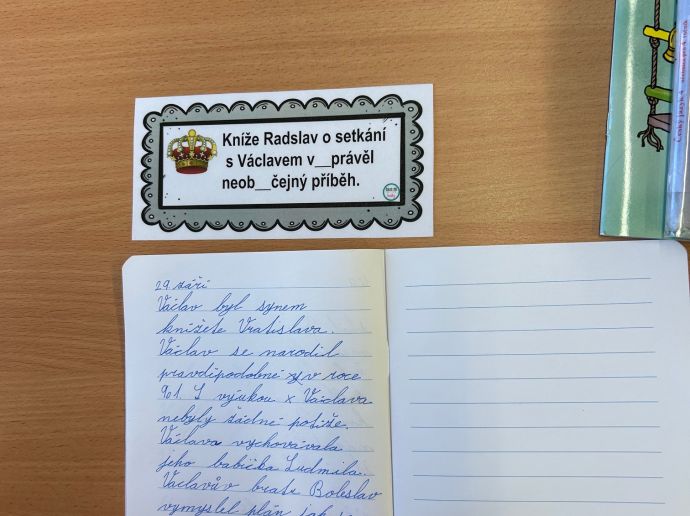 Kníže Radslav o setkání
s Václavem v__právěl
neob__čejný příběh.
Český jazyk 4
29. září
Václav byl synem
knížete Vratislava.
Václav se narodil
pravdipodobně v roce
901. S výukou x Václava
nebyly žádné potíže.
Václava vychovávala
jeho babička Ludmila.
Václavův bratr Boleslav
vymyslel plán jak se